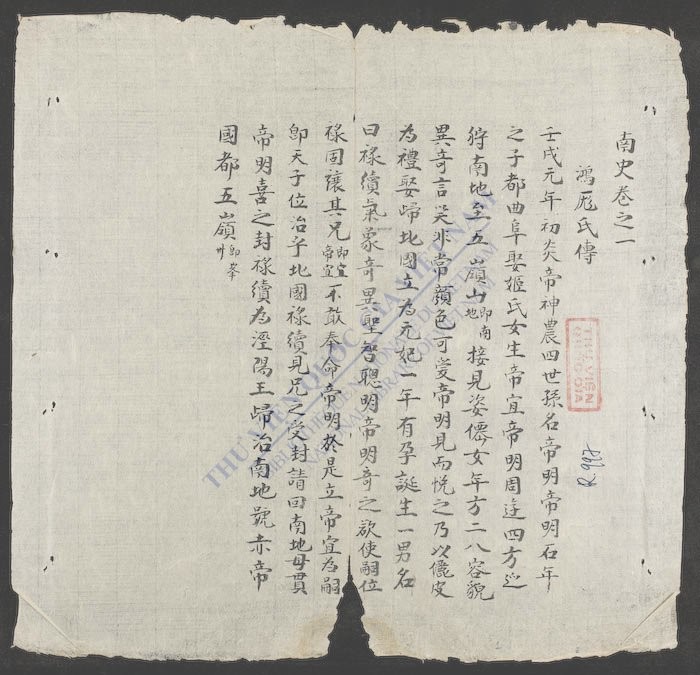 南史卷之一
鴻厖氏傳
壬戌元年初炎帝神農四世孫名帝明帝明石年
之子都曲阜娶姬氏女生帝宜帝明周迬四方巡
狩南地至五嶺山即南地接見姿僊女年方二八容貌
異奇言笑非常顔色可愛帝明見而悅之乃以儷皮
為禮娶歸北國立為元妃一年有孕誕生一男名
曰祿續氣象奇異聖智聰明帝明奇之欲使嗣位
祿固讓其兄即宜帝宜不敢奉命帝明於是立帝宜為嗣
即天子位治乎北國祿續見兄之受封請回南地母貫
帝明喜之封祿續為涇陽王歸治南地號赤帝
國都五嶺即峯
THƯ VIỆN QUỐC GIA
THƯ VIỆN QUỐC GIA VIỆT NAM
BIBLIOTHÈQUE NATIONALE DU VIETNAM
NATIONAL LIBRARY OF VIETNAM